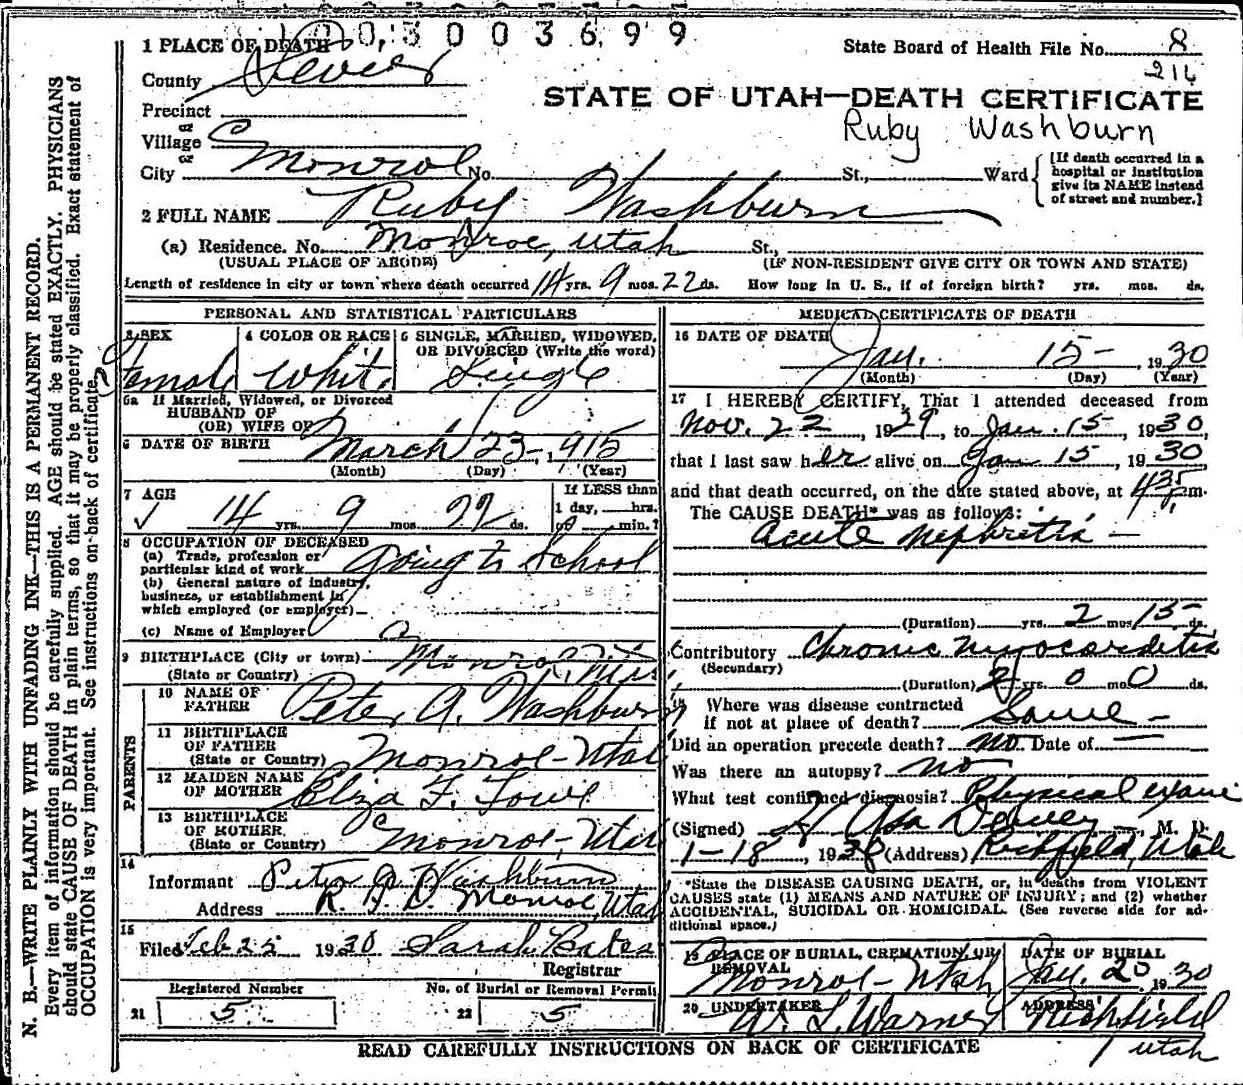 1003003699
1 PLACE OF DEATH
State Board of Health File No. 8
216
County Sevier
STATE OF UTAH—DEATH CERTIFICATE
Precinct
Ruby Washburn
or
Village
or
City Monroe No. St., Ward
[If death occurred in a hospital or institution give its NAME instead of street and number.]
2 FULL NAME Ruby Washburn
(a) Residence. No. Monroe, Utah St.,
(USUAL PLACE OF ABODE) (IF NON-RESIDENT GIVE CITY OR TOWN AND STATE)
Length of residence in city or town where death occurred 14 yrs. 9 mos. 22 ds. How long in U. S., if of foreign birth? yrs. mos. ds.
PERSONAL AND STATISTICAL PARTICULARS
3 SEX 4 COLOR OR RACE 5 SINGLE, MARRIED, WIDOWED, OR DIVORCED (Write the word)
Female White Single
6a If Married, Widowed, or Divorced
HUSBAND OF
(OR) WIFE OF
6 DATE OF BIRTH March 23–, 1915
(Month) (Day) (Year)
7 AGE
14 yrs. 9 mos 22 ds.
If LESS than
1 day, hrs.
or min.?
8 OCCUPATION OF DECEASED
(a) Trade, profession or
particular kind of work going to School
(b) General nature of industry,
business, or establishment in
which employed (or employer)
(c) Name of Employer
9 BIRTHPLACE (City or town) Monroe, Utah
(State or Country)
PARENTS
10 NAME OF
FATHER Peter A. Washburn
11 BIRTHPLACE
OF FATHER
(State or Country) Monroe - Utah
12 MAIDEN NAME
OF MOTHER Eliza F.
13 BIRTHPLACE
OF MOTHER
(State or Country) Monroe, Utah
14
Informant Peter A Washburn
Address R.F.D. Monroe, Utah
15
Filed Feb 25 1930 Sarah Bates
Registrar
Registered Number No. of Burial or Removal Permit
21 5 22 5
MEDICAL CERTIFICATE OF DEATH
16 DATE OF DEATH
Jan. 15– , 1930
(Month) (Day) (Year)
17 I HEREBY CERTIFY, That I attended deceased from
Nov. 22, 1929, to Jan. 15, 1930,
that I last saw her alive on Jan 15, 1930
and that death occurred, on the date stated above, at 4:35 pm.
The CAUSE DEATH* was as follows:
Acute Nephritis –
(Duration) yrs. 2 mos 15 ds.
Contributory Chronic Myocarditis
(Secondary)
(Duration) yrs. 0 mo 0 ds.
Where was disease contracted
if not at place of death? Same –
Did an operation precede death? no Date of —
Was there an autopsy? no
What test confirmed diagnosis? Physical exam
(Signed) Asa Dewey, M. D.
1-18, 1930 (Address) Richfield, Utah
*State the DISEASE CAUSING DEATH, or, in deaths from VIOLENT
CAUSES state (1) MEANS AND NATURE OF INJURY; and (2) whether
ACCIDENTAL, SUICIDAL OR HOMICIDAL. (See reverse side for ad-
ditional space.)
19 PLACE OF BURIAL, CREMATION, OR REMOVAL DATE OF BURIAL
Monroe - Utah Jan. 20 1930
20 UNDERTAKER ADDRESS
W. L. Warner Richfield
Utah
READ CAREFULLY INSTRUCTIONS ON BACK OF CERTIFICATE
N. B.—WRITE PLAINLY WITH UNFADING INK—THIS IS A PERMANENT RECORD.
Every item of information should be carefully supplied. AGE should be stated EXACTLY. PHYSICIANS
should state CAUSE OF DEATH in plain terms, so that it may be properly classified. Exact statement of
OCCUPATION is very important. See instructions on back of certificate.